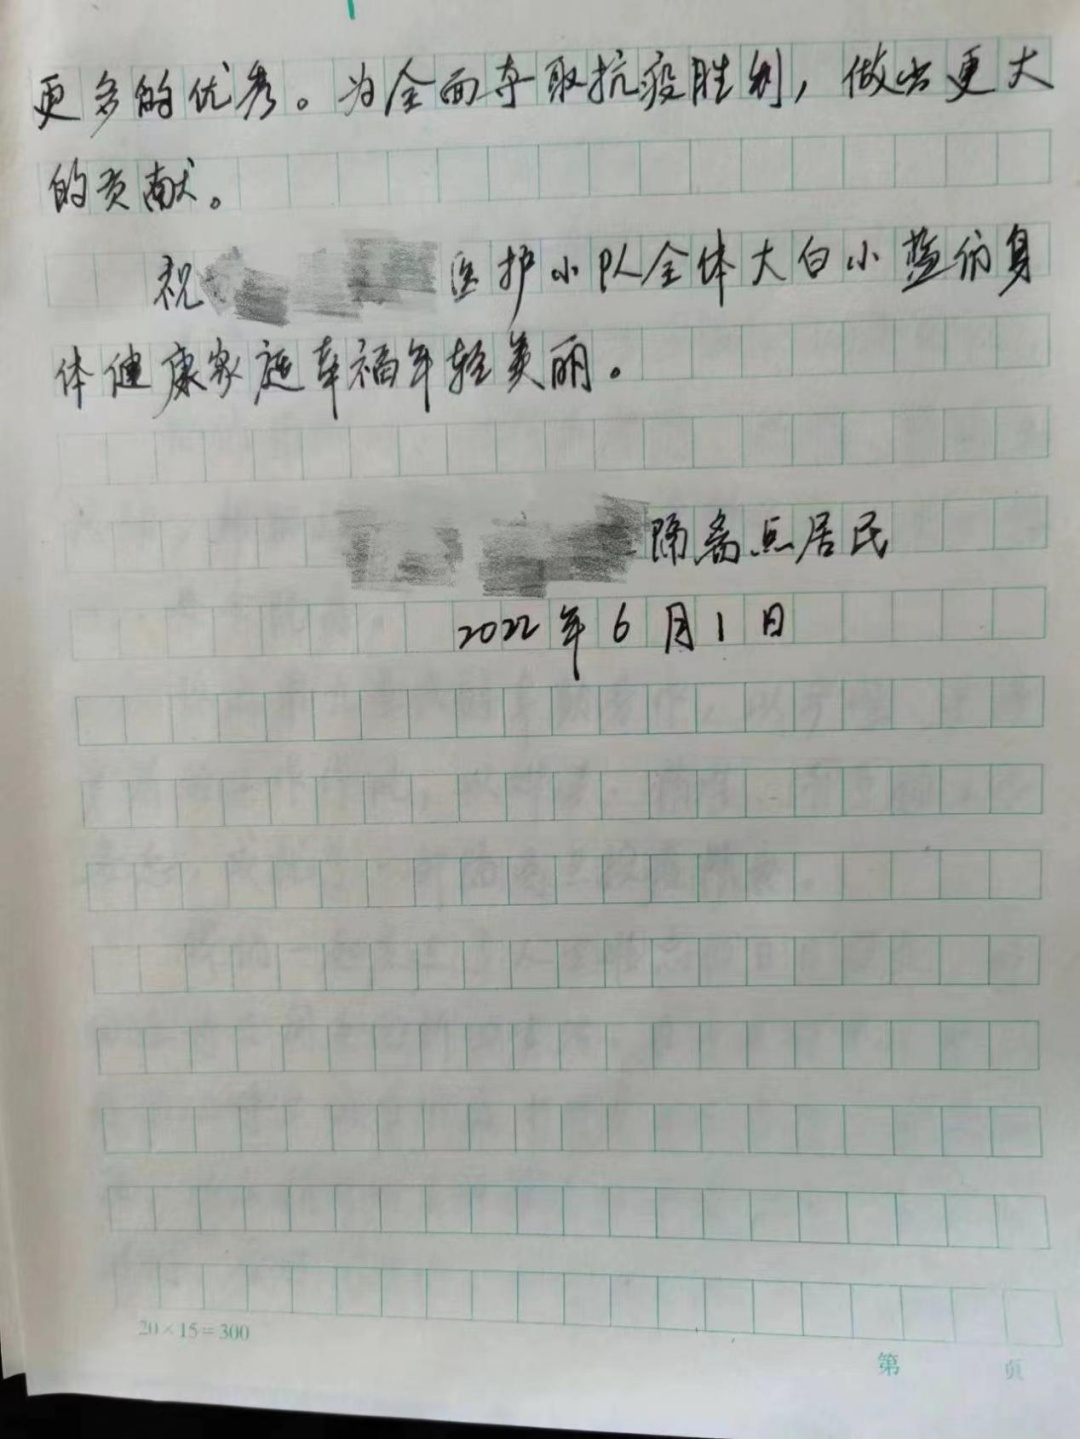 更多的优秀。为全面夺取抗疫胜利，做出更大
的贡献。
祝 医护小队全体大白小蓝们身
体健康家庭幸福年轻美丽。
隔离点居民
2022年6月1日
20×15=300
第 页